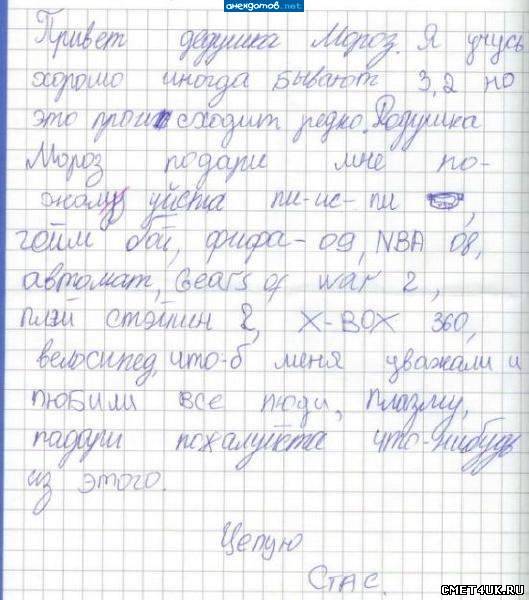 анекдотов.net
Привет дедушка Мороз. Я учусь
хорошо иногда бывают 3, 2 но
это происходит редко. Дедушка
Мороз подари мне по-
жалуйста пи-ис-пи ,
гейм бой, фифа-09, NBA 08,
автомат, Gears of war 2,
плэй стэйшн 2, X-BOX 360,
велосипед, что-б меня уважали и
любили все люди, плазму,
падари пожалуйкта что-нибудь
из этого.
Целую
Стас.
CMET4UK.RU